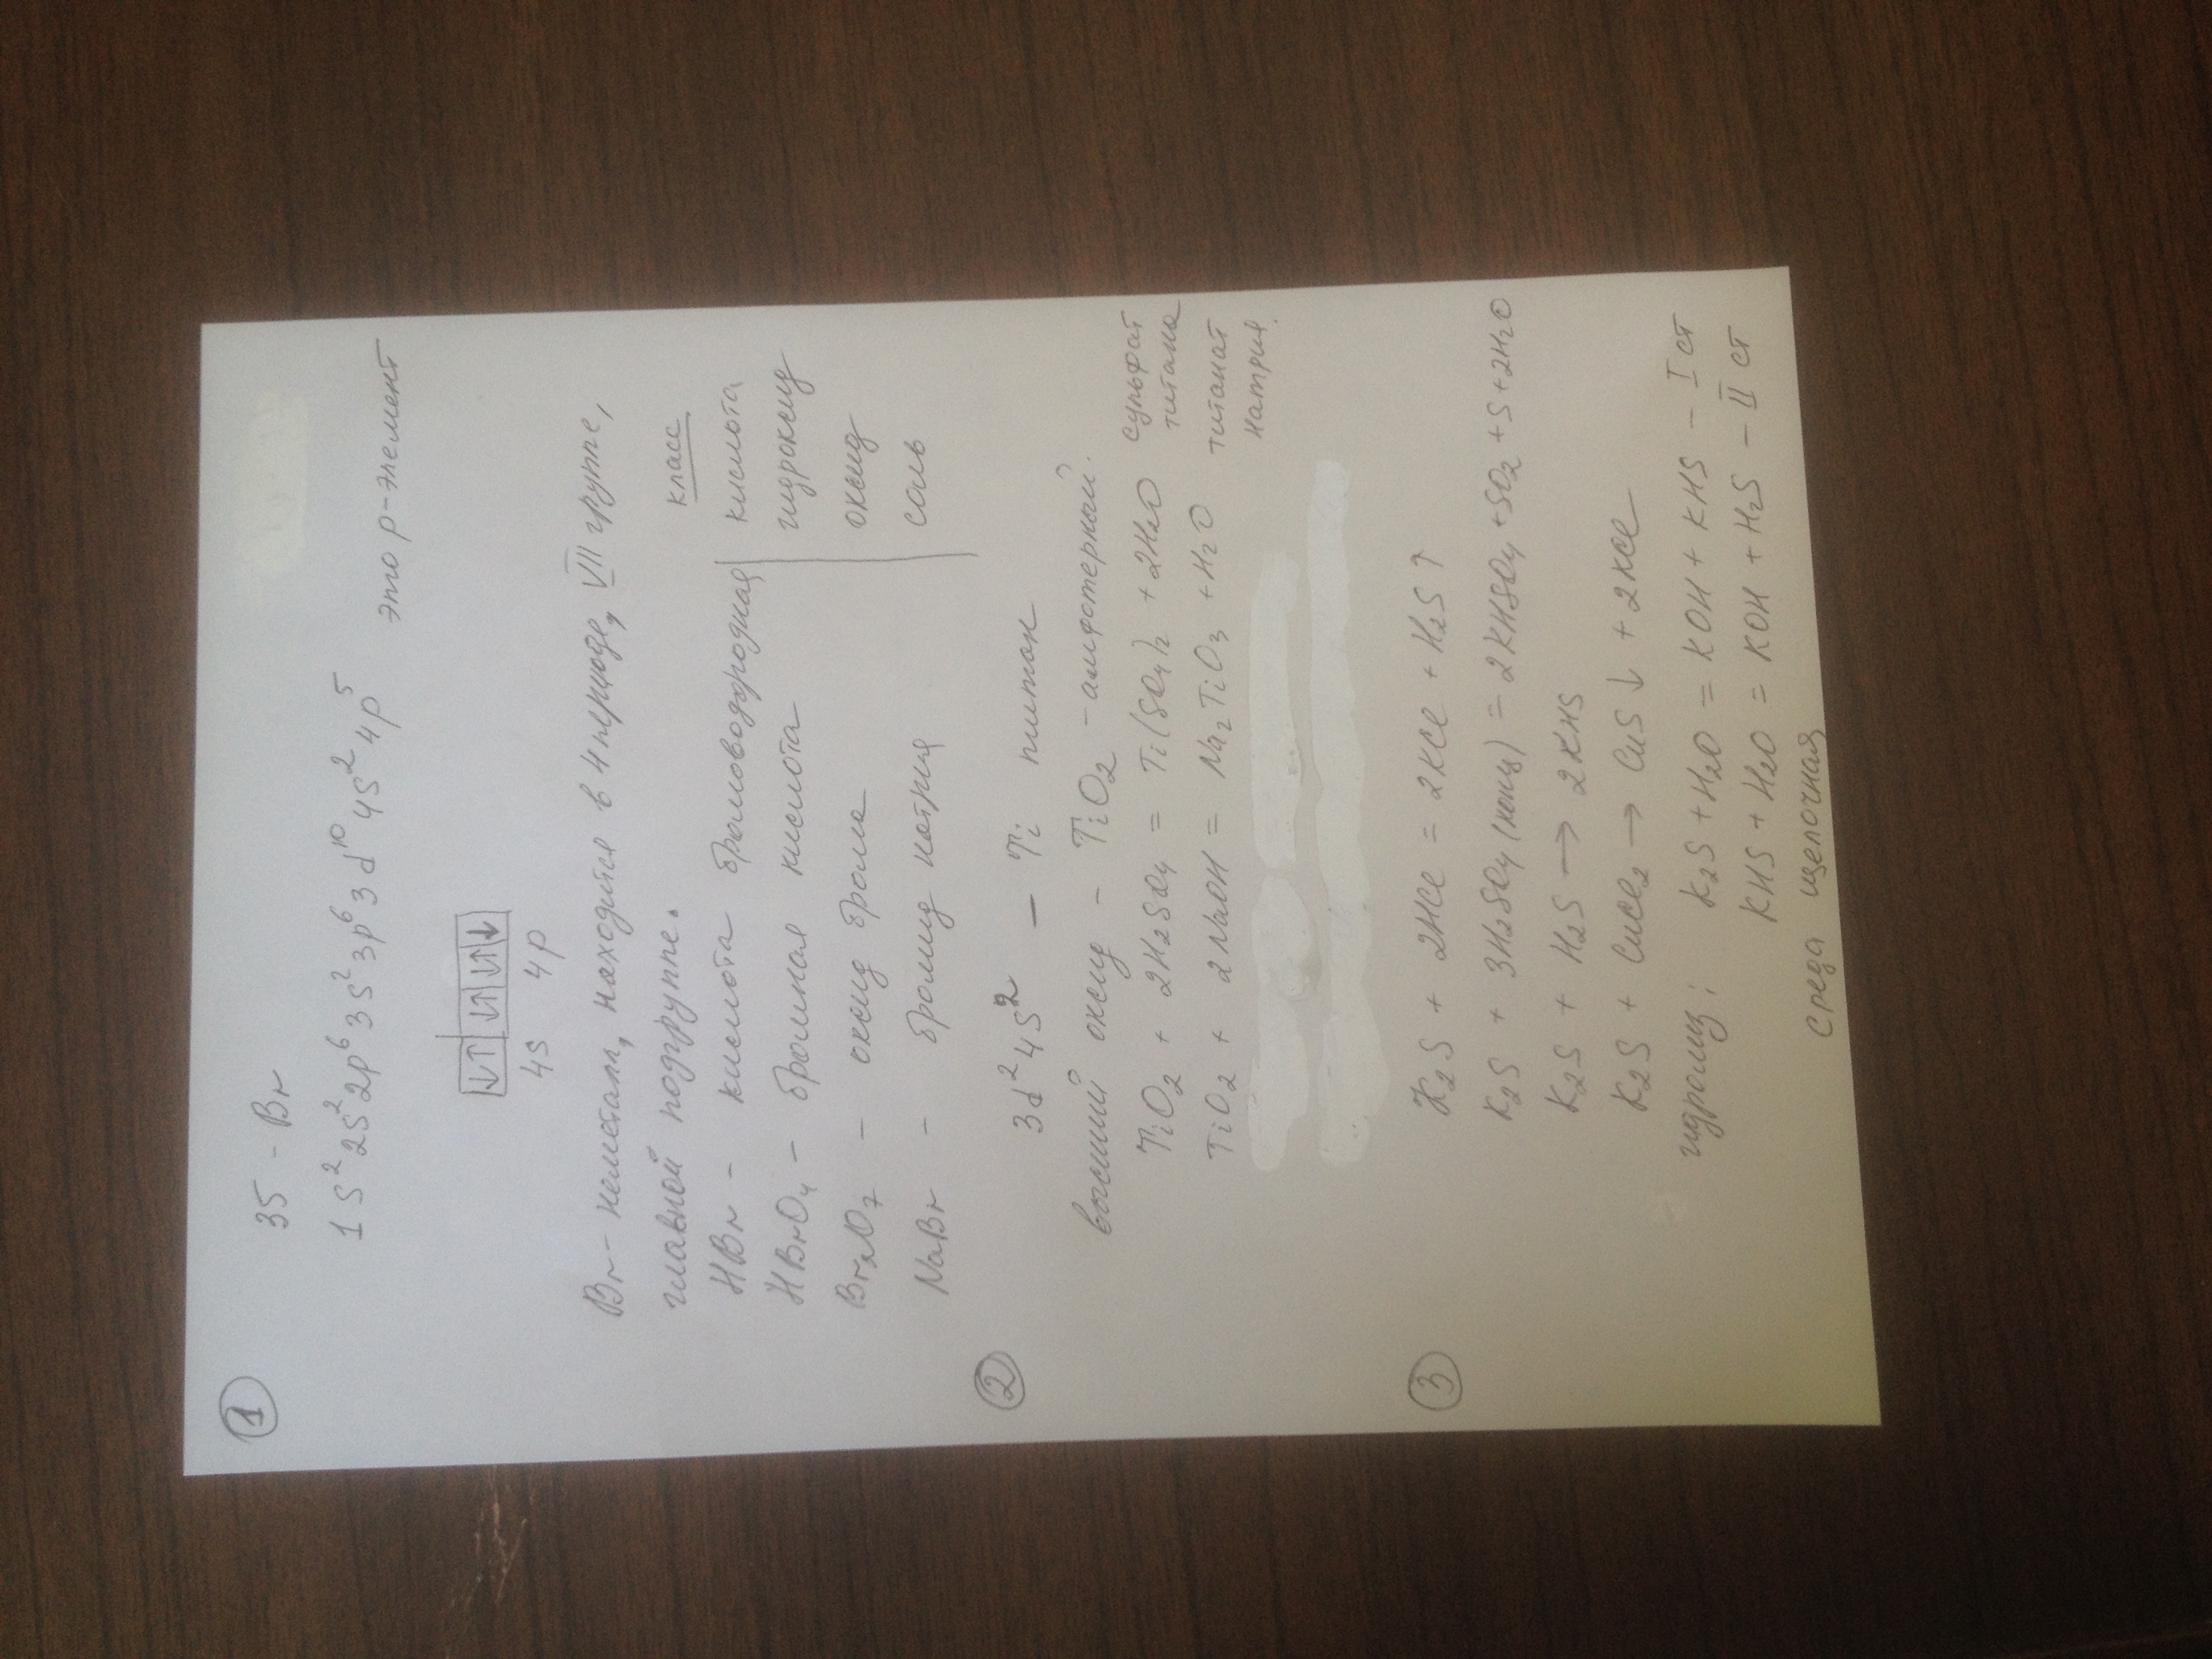 1
35 - Br
1s² 2s² 2p⁶ 3s² 3p⁶ 3d¹⁰ 4s² 4p⁵
это p-элемент
↓↑ ↓↑ ↓↑ ↓
4s 4p
Br - неметалл, находится в 4 периоде, VII группе,
главной подгруппе.
класс
HBr - кислота бромоводородная | кислота
HBrO₄ - бромная кислота | гидроксид
Br₂O₇ - оксид брома | оксид
NaBr - бромид натрия | соль
2
3d² 4s² - Ti титан
высший оксид - TiO₂ - амфотерный.
TiO₂ + 2H₂SO₄ = Ti(SO₄)₂ + 2H₂O сульфат титана
TiO₂ + 2NaOH = Na₂TiO₃ + H₂O титанат натрия.
3
K₂S + 2HCl = 2KCl + H₂S↑
K₂S + 3H₂SO₄(конц) = 2KHSO₄ + SO₂ + S + 2H₂O
K₂S + H₂S → 2KHS
K₂S + CuCl₂ → CuS↓ + 2KCl
гидролиз: K₂S + H₂O = KOH + KHS - I ст
KHS + H₂O = KOH + H₂S - II ст
Среда щелочная